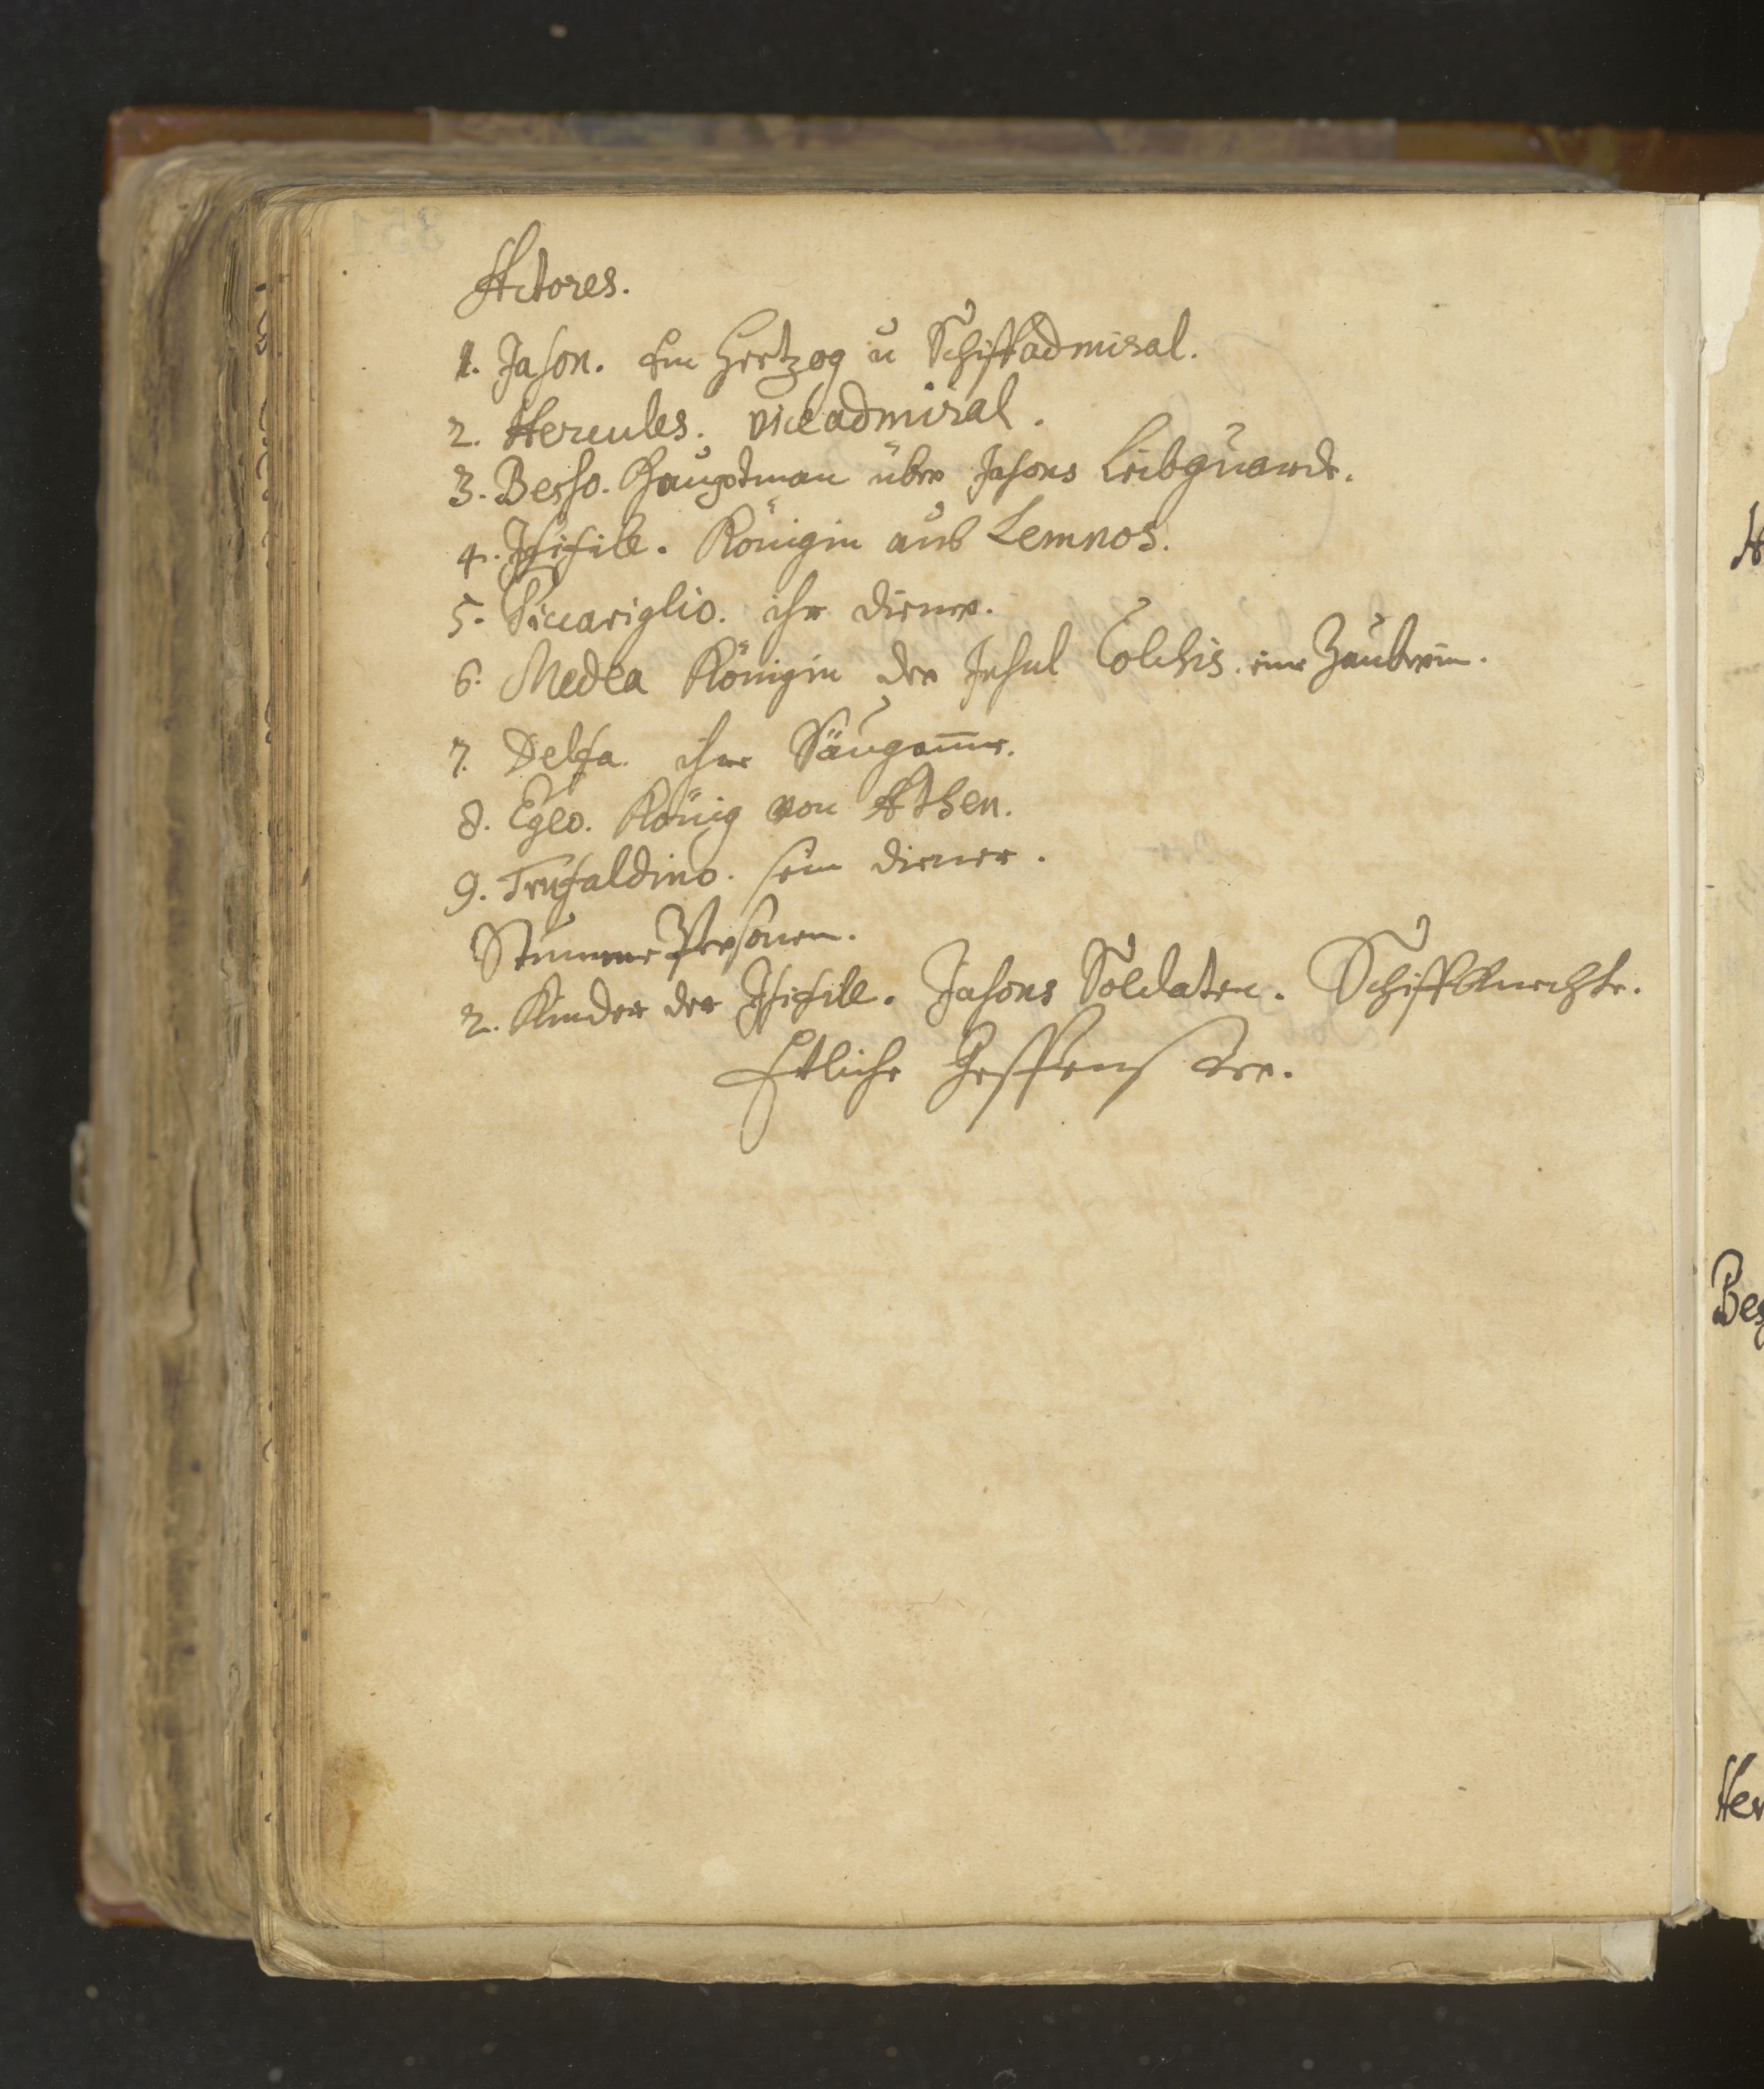 Actores.
1. Jason. Ein Hertzog u Schiffadmiral.
2. Hercules. viceadmiral.
3. Besso. Haupotman über Jasons Leibguarde.
4. Isifile. Königin aus Lemnos.
5. Piccariglio. ihr diener.
6. Medea Königin der Insul Colchis. eine Zauberin.
7. Delfa. ihre Säugam̅e.
8. Egeo. König von Athen.
9. Trufaldino. sein diener.
Stumme Personen.
2. Kinder der Isifile. Jasons Soldaten. Schiffknechte.
Etliche Gespenster.
Bes
Her